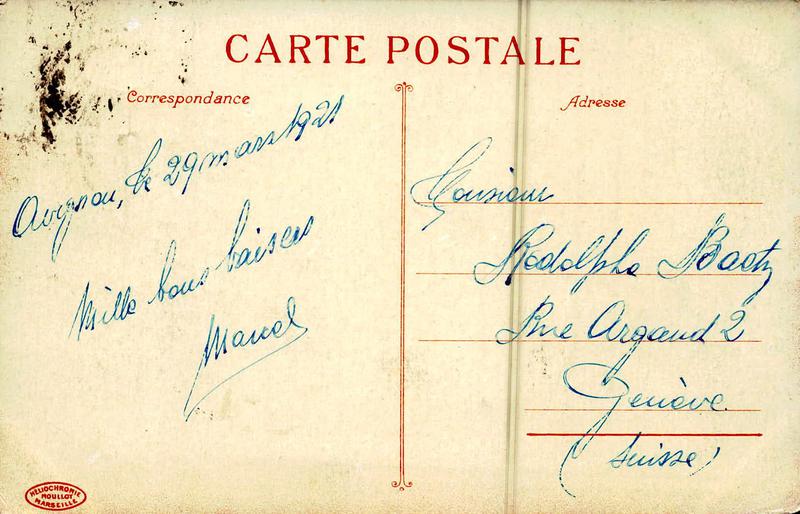 CARTE POSTALE
Correspondance
Adresse
Avignon, le 29 mars 1921
Mille bons baisers
Marcel
Monsieur
Rodolphe
Rue Argand 2
Genève
(Suisse)
HÉLIOCHROMIE
MOULLOT
MARSEILLE